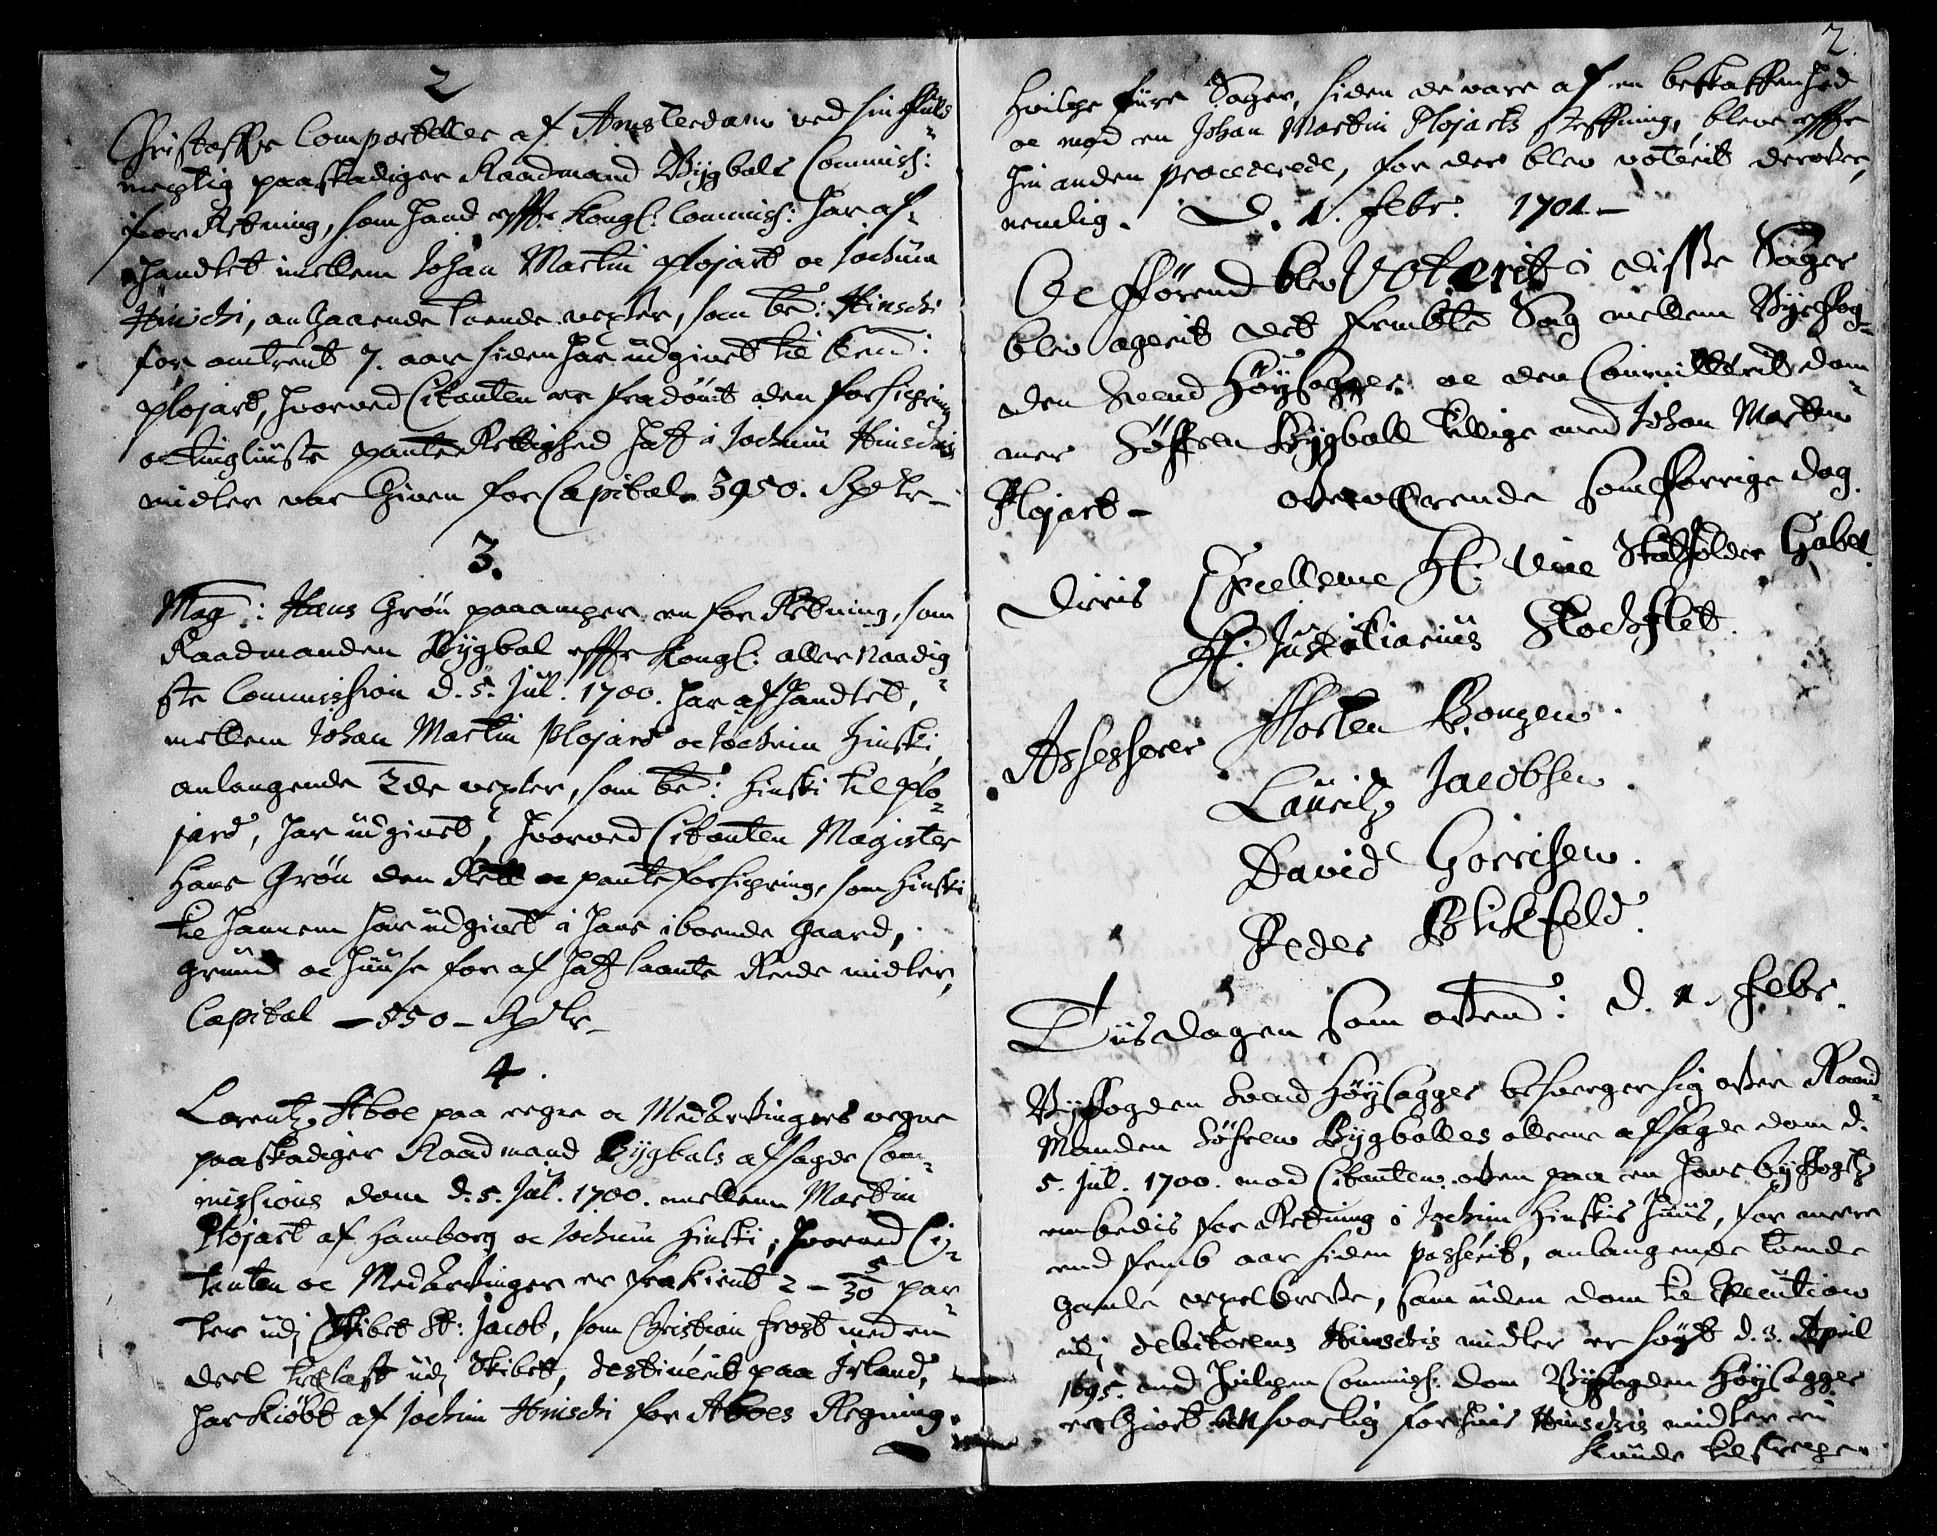 2
Christoffer Comportelle af Amsterdam ved sin fuld-
megtig paaskadiger Raadmand Bygbals Commiss:
forRetning, som hand effter Kongl: Commiss: har af-
handlet imellem Johan Martin Plojart oc Jochum
Hinschi, angaaende tvende vexler, som be: Hinschi
for omtrent 7. aar siden har udgivet til bem:
Plojart, hvorved Citanten er fradømt den forsichring
oc tingliuste pante Rettighed hand i Jochum Hinschis
midler var Given for Capital 3950. Rdlr
3.
Mag: Hans Grøn paaancher en forRetning, som
Raadmanden Bygbal effter Kongl: aller Naadig-
ste Commission d. 5. Jul. 1700. har afhandlet,
mellem Johan Martin Plojard oc Jochim Hinski,
anlangende 2de vexler, som be: Hinski til Plo-
jard, har udgivet, hvorved Citanten Magister
Hans Grøn den Rett oc pante forsichring, som Hinski
til hannem har udgivet i hans iboende Gaard,
Grund oc huuse for af hand laante Rede midler,
Capital - 550 - Rdlr
4.
Lorentz Aboe paa egne oc MedArvingers vegne
paaskadiger Raadmand Bygbals afsagde Com-
missions dom d. 5. Jul. 1700. mellem Martin
Plojart af Hamborg oc Jochum Hinski, hvorved Ci-
tanten oc MedArvinger er frakient 2 - 5/30 par-
ter udj Skibet St: Jacob, som Christian Frost med en
deel trælast udj Skibet, destinerit paa Irland,
har kiøbt af Jochim Hinschi for Aboes Regning.
2.
Hvilche fiire Sager, siden de vare af en beskaffenhed
oc mod en Johan Martin Plojarts steffning, bleve effter
hin anden procederede, før der blev voterit derover,
nemlig. D. 1. Febr. 1701
Oc førend blev Voterit i disse Sager
blev agerit det fembte Sag mellem Byefog-
den Svend Høysagger oc den Committerit dom-
mer Søffren Bygball tillige med Johan Martin
Plojart - overværende som forrige dag.
Deris Excellence H: Vice Statholder Gabel
H: Justitiarius Stochflet.
Assessorer Morten Bonzen.
Lauritz Jacobsen.
David Gorrisen.
Peder Blikfeld.
Tiisdagen som oven: d. 1. Febr.
Byfogden Svend Høysagger besverger sig over Raad-
Manden Søfren Bygballes alleene afsagde dom d.
5. Jul. 1700. mod Citanten, oven paa en hans byfogtz
embedis forRetning i Jochim Hinskis huus, for meere
end femb aar siden passerit, anlangende tvende
gamle vexelbreve, som uden dom til Execution
udj debitorens Hinschis midler er søgt d. 3. April
1695. med hvilchen Commiss: dom Byfogden Høysagger
er Giort ansvarlig forhvis Hinschis midler ei
kunde tilstreche